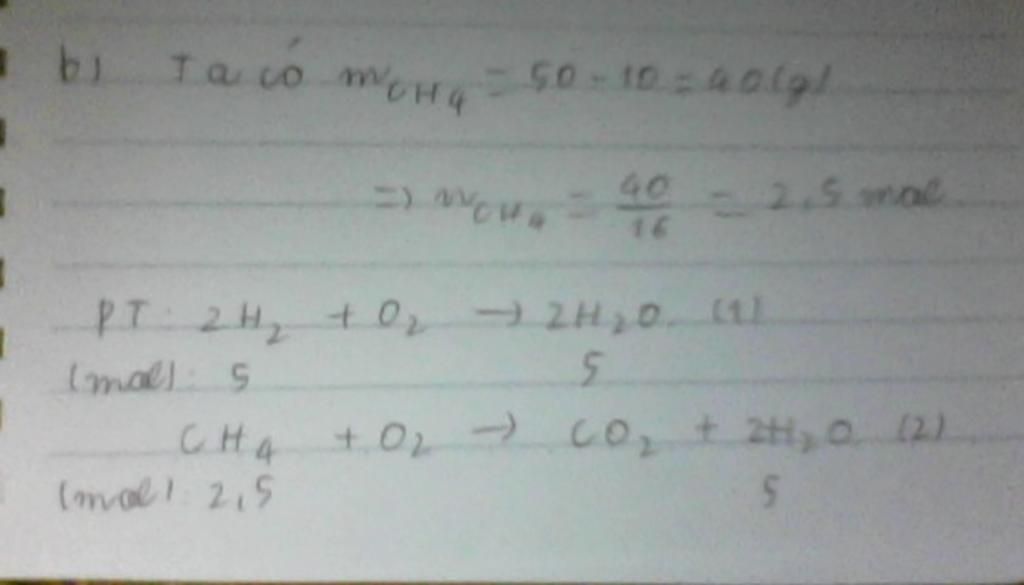 b) Ta có mCH₄ = 50 - 10 = 40(g)
=> nCH₄ = 40/16 = 2,5 mol
PT: 2H₂ + O₂ → 2H₂O (1)
(mol): 5 5
CH₄ + O₂ → CO₂ + 2H₂O (2)
(mol): 2,5 5